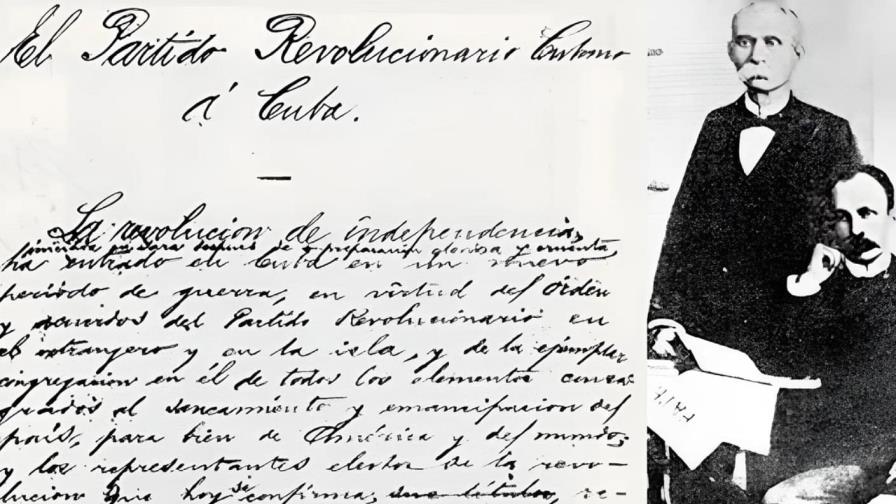 El Partido Revolucionario Cubano
á Cuba.
La revolucion de independencia,
iniciada en Yara despues de preparacion gloriosa y cruenta
ha entrado en Cuba en un nuevo
periodo de guerra, en virtud del órden
y acuerdos del Partido Revolucionario en
el extranjero y en la isla, y de la ejemplar
congregacion en él de todos los elementos consa
grados al saneamiento y emancipacion del
país, para bien de América y del mundo;
y los representantes electos de la revo-
lucion que hoy se confirma, re-
PATR